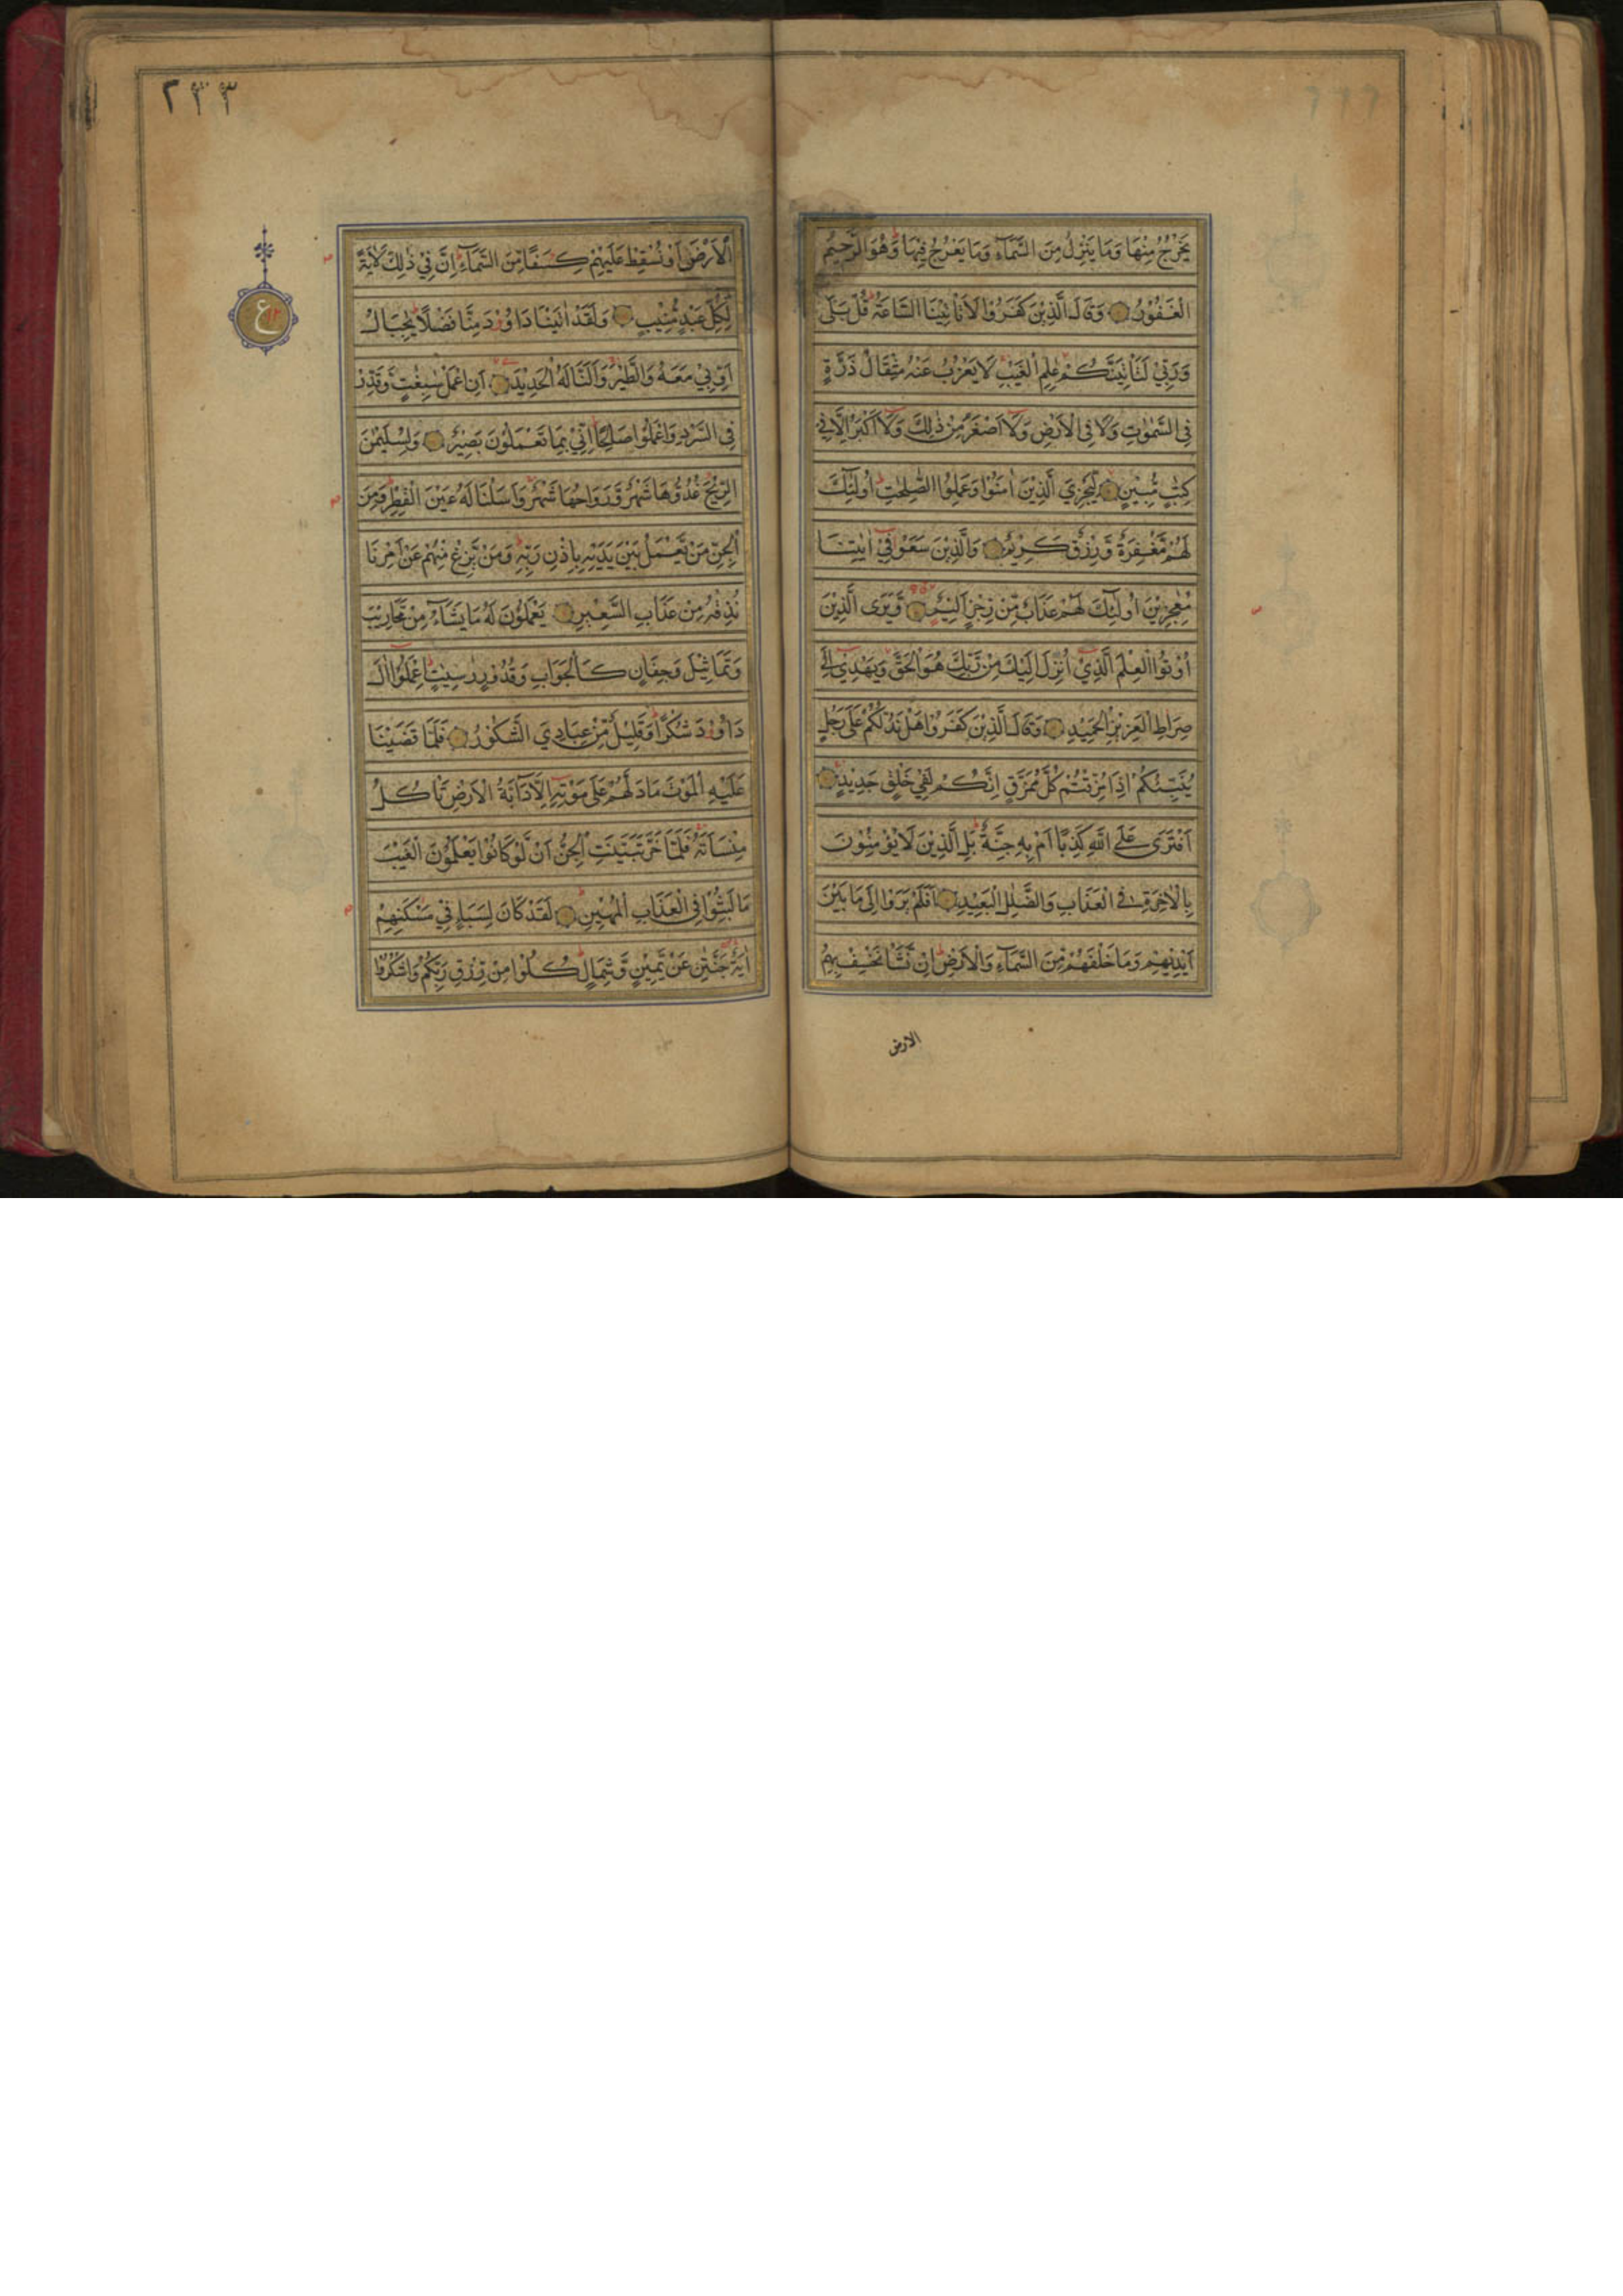 يَخْرُجُ مِنْهَا وَمَا يَنْزِلُ مِنَ السَّمَآءِ وَمَا يَعْرُجُ فِيْهَا وَهُوَ الرَّحِيْمُ
الْغَفُوْرُ وَقَالَ الَّذِيْنَ كَفَرُوْا لَا تَأْتِيْنَا السَّاعَةُ قُلْ بَلٰى
وَرَبِّيْ لَتَأْتِيَنَّكُمْ عٰلِمِ الْغَيْبِ لَا يَعْزُبُ عَنْهُ مِثْقَالُ ذَرَّةٍ
فِى السَّمٰوٰتِ وَلَا فِى الْاَرْضِ وَلَآ اَصْغَرُ مِنْ ذٰلِكَ وَلَآ اَكْبَرُ اِلَّا فِيْ
كِتٰبٍ مُّبِيْنٍ لِّيَجْزِيَ الَّذِيْنَ اٰمَنُوْا وَعَمِلُوا الصّٰلِحٰتِ اُولٰٓئِكَ
لَهُمْ مَّغْفِرَةٌ وَّرِزْقٌ كَرِيْمٌ وَالَّذِيْنَ سَعَوْ فِيْٓ اٰيٰتِنَا
مُعٰجِزِيْنَ اُولٰٓئِكَ لَهُمْ عَذَابٌ مِّنْ رِّجْزٍ اَلِيْمٌ وَيَرَى الَّذِيْنَ
اُوْتُوا الْعِلْمَ الَّذِيْٓ اُنْزِلَ اِلَيْكَ مِنْ رَّبِّكَ هُوَ الْحَقَّ وَيَهْدِيْٓ اِلٰى
صِرَاطِ الْعَزِيْزِ الْحَمِيْدِ وَقَالَ الَّذِيْنَ كَفَرُوْا هَلْ نَدُلُّكُمْ عَلٰى رَجُلٍ
يُّنَبِّئُكُمْ اِذَا مُزِّقْتُمْ كُلَّ مُمَزَّقٍ اِنَّكُمْ لَفِيْ خَلْقٍ جَدِيْدٍ
اَفْتَرٰى عَلَى اللّٰهِ كَذِبًا اَمْ بِهٖ جِنَّةٌ بَلِ الَّذِيْنَ لَا يُؤْمِنُوْنَ
بِالْاٰخِرَةِ فِى الْعَذَابِ وَالضَّلٰلِ الْبَعِيْدِ اَفَلَمْ يَرَوْا اِلٰى مَا بَيْنَ
اَيْدِيْهِمْ وَمَا خَلْفَهُمْ مِّنَ السَّمَآءِ وَالْاَرْضِ اِنْ نَّشَأْ نَخْسِفْ بِهِمُ
الارض
٢٣٣
الْاَرْضَ اَوْ نُسْقِطْ عَلَيْهِمْ كِسَفًا مِّنَ السَّمَآءِ اِنَّ فِيْ ذٰلِكَ لَاٰيَةً
لِّكُلِّ عَبْدٍ مُّنِيْبٍ وَلَقَدْ اٰتَيْنَا دَاوٗدَ مِنَّا فَضْلًا يٰجِبَالُ
اَوِّبِيْ مَعَهٗ وَالطَّيْرَ وَاَلَنَّا لَهُ الْحَدِيْدَ اَنِ اعْمَلْ سٰبِغٰتٍ وَّقَدِّرْ
فِى السَّرْدِ وَاعْمَلُوْا صَالِحًا اِنِّيْ بِمَا تَعْمَلُوْنَ بَصِيْرٌ وَلِسُلَيْمٰنَ
الرِّيْحَ غُدُوُّهَا شَهْرٌ وَّرَوَاحُهَا شَهْرٌ وَاَسَلْنَا لَهٗ عَيْنَ الْقِطْرِ وَمِنَ
الْجِنِّ مَنْ يَّعْمَلُ بَيْنَ يَدَيْهِ بِاِذْنِ رَبِّهٖ وَمَنْ يَّزِغْ مِنْهُمْ عَنْ اَمْرِنَا
نُذِقْهُ مِنْ عَذَابِ السَّعِيْرِ يَعْمَلُوْنَ لَهٗ مَا يَشَآءُ مِنْ مَّحَارِيْبَ
وَتَمَاثِيْلَ وَجِفَانٍ كَالْجَوَابِ وَقُدُوْرٍ رّٰسِيٰتٍ اِعْمَلُوْٓا اٰلَ
دَاوٗدَ شُكْرًا وَقَلِيْلٌ مِّنْ عِبَادِيَ الشَّكُوْرُ فَلَمَّا قَضَيْنَا
عَلَيْهِ الْمَوْتَ مَا دَلَّهُمْ عَلٰى مَوْتِهٖٓ اِلَّا دَآبَّةُ الْاَرْضِ تَأْكُلُ
مِنْسَاَتَهٗ فَلَمَّا خَرَّ تَبَيَّنَتِ الْجِنُّ اَنْ لَّوْ كَانُوْا يَعْلَمُوْنَ الْغَيْبَ
مَا لَبِثُوْا فِى الْعَذَابِ الْمُهِيْنِ لَقَدْ كَانَ لِسَبَاٍ فِيْ مَسْكَنِهِمْ
اٰيَةٌ جَنَّتٰنِ عَنْ يَّمِيْنٍ وَّشِمَالٍ كُلُوْا مِنْ رِّزْقِ رَبِّكُمْ وَاشْكُرُوْا